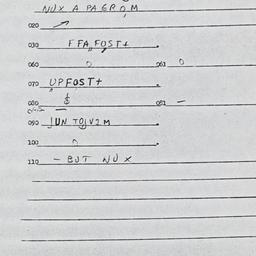 NUX A PAGROM
020
030 FFA FOST+
060 0 061 0
070 UPFOST+
080 $ 081 -
090 JUN TOJV2M
100 0
110 - BUT NUX